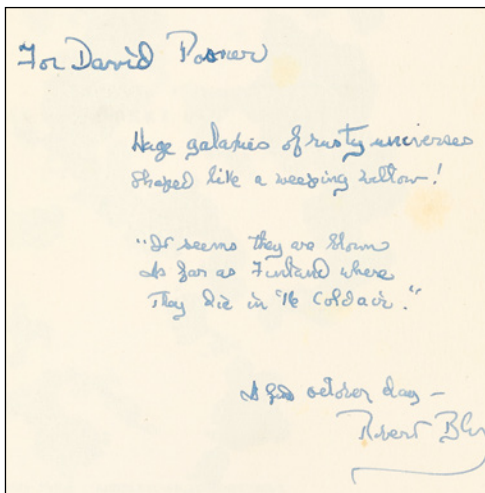 For David Posner
Huge galaxies of rusty universes
Shaped like a weeping willow!
"It seems they are blown
As far as Finland where
They die in the Cold air."
October day –
Robert Bly